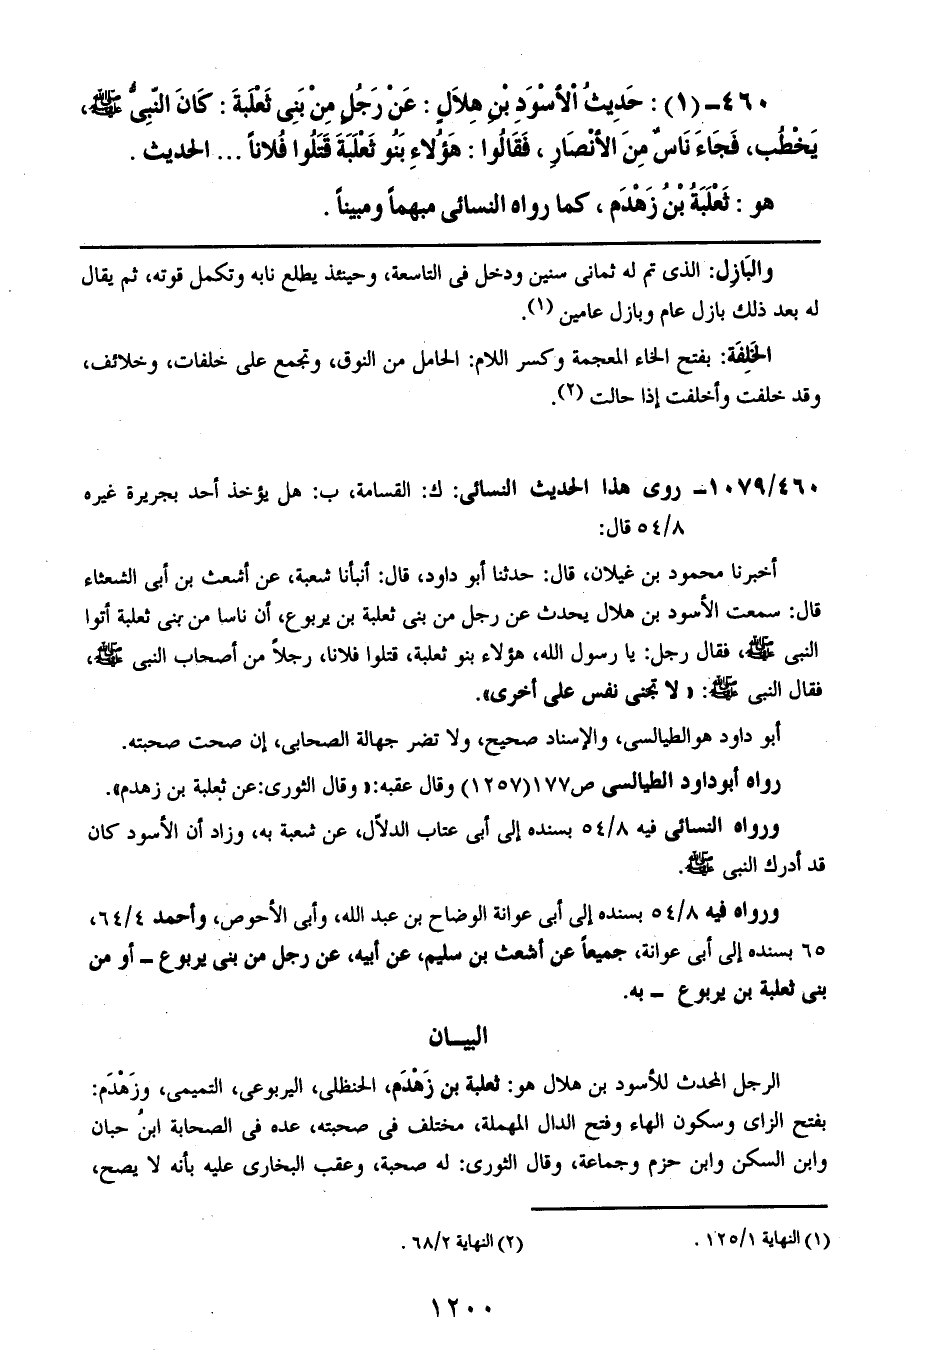 ٤٦٠ــ(١) : حَدِيثُ الْأَسْوَدِ بْنِ هِلَالٍ : عَنْ رَجُلٍ مِنْ بَنِى ثَعْلَبَةَ : كَانَ النَّبِىُّ ﷺ،
يَخْطُب، فَجَاءَ نَاسٌ مِنَ الأَنْصَارِ ، فَقَالُوا : هَؤُلَاءِ بَنُو ثَعْلَبَةَ قَتَلُوا فُلاناً ... الحديث .
هو : ثَعْلَبَةُ بْنُ زَهْدَم ، كما رواه النسائى مبهماً ومبيناً .
والبَازِل: الذى تم له ثمانى سنين ودخل فى التاسعة، وحينئذ يطلع نابه وتكمل قوته، ثم يقال
له بعد ذلك بازل عام وبازل عامين (١).
الخَلِفَة: بفتح الخاء المعجمة وكسر اللام: الحامل من النوق، وتجمع على خلفات، وخلائف،
وقد خلفت وأخلفت إذا حالت (٢).
١٠٧٩/٤٦٠ــ روى هذا الحديث النسائى: ك: القسامة، ب: هل يؤخذ أحد بجريرة غيره
٥٤/٨ قال:
أخبرنا محمود بن غيلان، قال: حدثنا أبو داود، قال: أنبأنا شعبة، عن أشعث بن أبى الشعثاء
قال: سمعت الأسود بن هلال يحدث عن رجل من بنى ثعلبة بن يربوع، أن ناسا من بنى ثعلبة أتوا
النبى ﷺ، فقال رجل: يا رسول الله، هؤلاء بنو ثعلبة، قتلوا فلانا، رجلاً من أصحاب النبى ﷺ،
فقال النبى ﷺ: « لا تجنى نفس على أخرى».
أبو داود هوالطيالسى، والإسناد صحيح، ولا تضر جهالة الصحابى، إن صحت صحبته.
رواه أبوداود الطيالسى ص١٧٧(١٢٥٧) وقال عقبه:« وقال الثورى:عن ثعلبة بن زهدم».
ورواه النسائى فيه ٥٤/٨ بسنده إلى أبى عتاب الدلاّل، عن شعبة به، وزاد أن الأسود كان
قد أدرك النبى ﷺ.
ورواه فيه ٥٤/٨ بسنده إلى أبى عوانة الوضاح بن عبد الله، وأبى الأحوص، وأحمد ٦٤/٤،
٦٥ بسنده إلى أبى عوانة، جميعاً عن أشعث بن سليم، عن أبيه، عن رجل من بنى يربوع ــ أو من
بنى ثعلبة بن يربوع ــ به.
البيـــان
الرجل المحدث للأسود بن هلال هو: ثعلبة بن زَهْدَم، الحنظلى، اليربوعى، التميمى، وزَهْدَم:
بفتح الزاى وسكون الهاء وفتح الدال المهملة، مختلف فى صحبته، عده فى الصحابة ابنُ حبان
وابن السكن وابن حزم وجماعة، وقال الثورى: له صحبة، وعقب البخارى عليه بأنه لا يصح،
(١) النهاية ١٢٥/١ .
(٢) النهاية ٦٨/٢ .
١٢٠٠